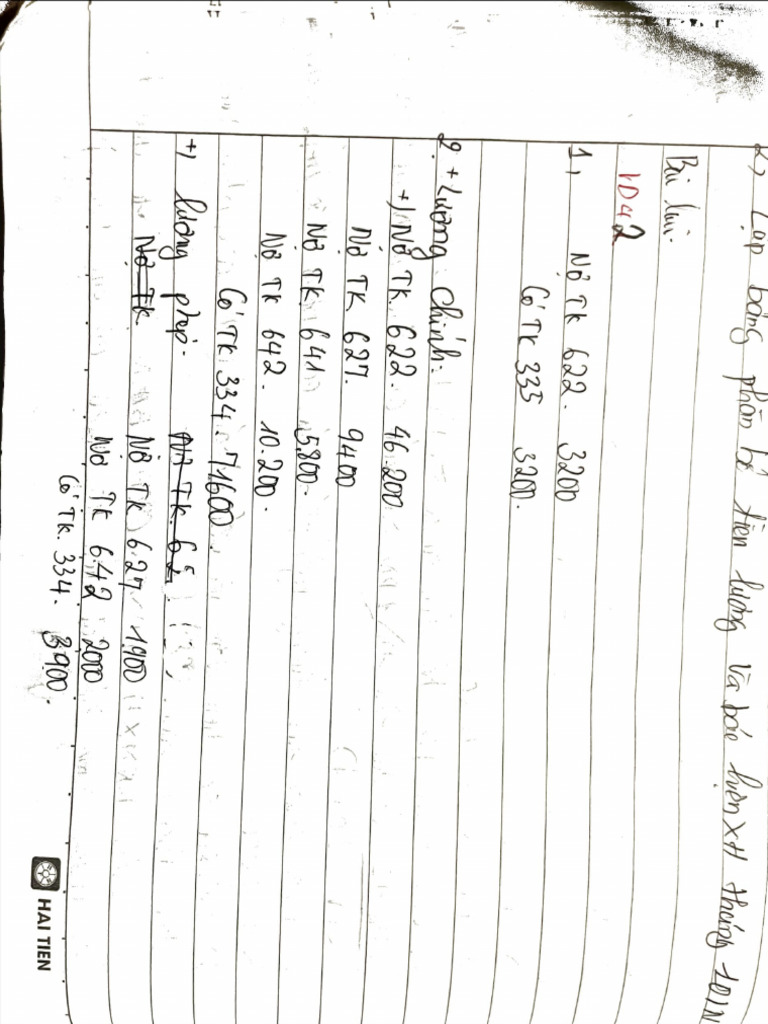 2, Lập bảng phân bổ tiền lương và bảo hiểm XH tháng 10/N
Bài làm.
VD42
1, Nợ TK 622. 3200
Có TK 335 3200.
2. + Lương chính.
+) Nợ TK 622. 46.200
Nợ TK 627. 9400
Nợ TK 641 5.800.
Nợ TK 642. 10.200.
Có TK 334. 71600.
+) lương phép. Nợ TK 62
Nợ TK Nợ TK 627 1.900
Nợ TK 642 2000
Có TK. 334. 3.900.
HAI TIEN